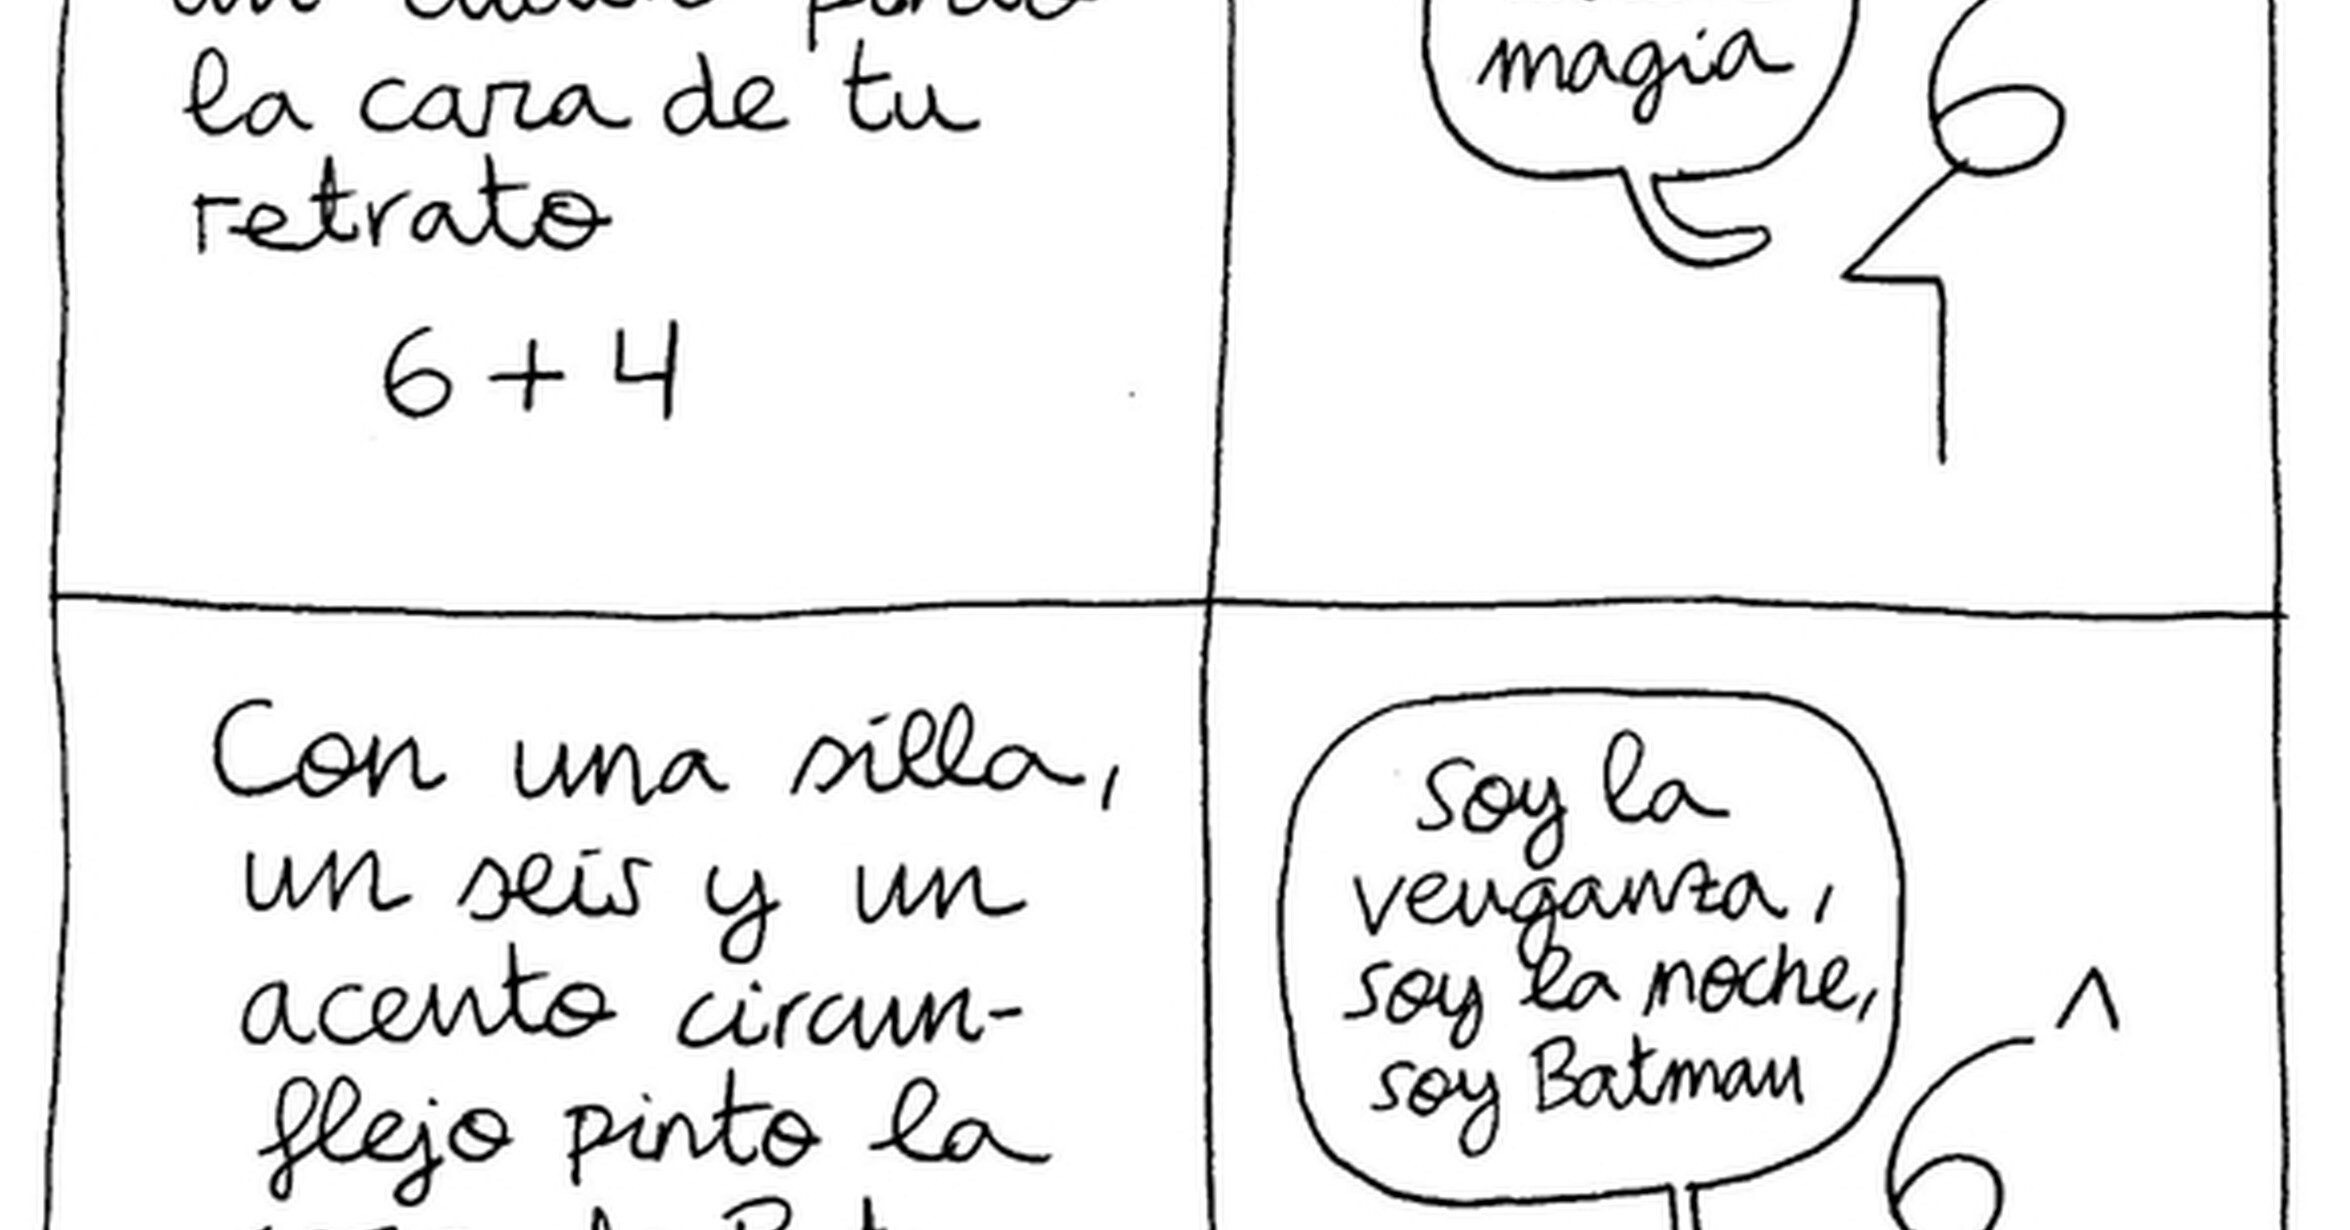 la cara de tu
retrato
6 + 4
magia
Con una silla,
un seis y un
acento circun-
flejo pinto la
soy la
venganza,
soy la noche,
soy Batman